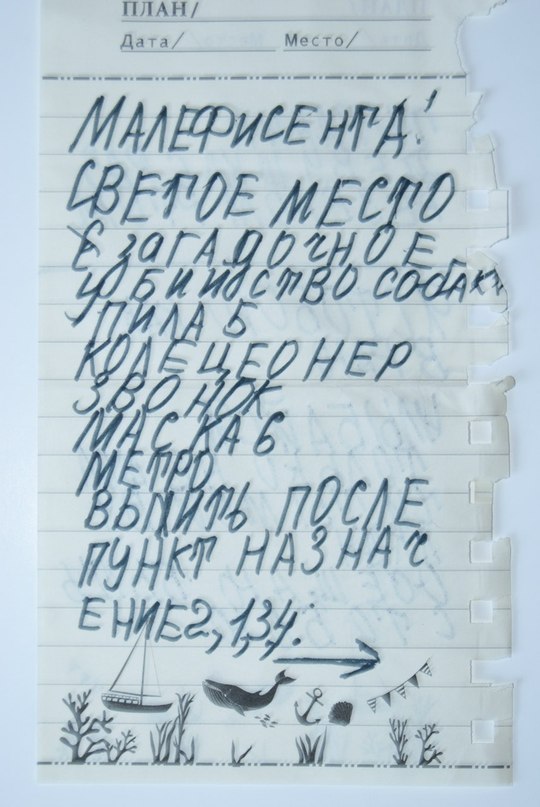 ПЛАН/
Дата/ Место/
МАЛЕФИСЕНТА!
СВЕТОЕ МЕСТО
ЗАГАДОЧНОЕ
УБИИЙСТВО СОБАКИ
ПИЛА 5
КОЛЕЦЕОНЕР
ЗВОНОК
МАСКА 6
МЕТРО
ВЫПИТЬ ПОСЛЕ
ПУНКТ НАЗНАЧ
ЕНИЕ 2, 1,3,4: